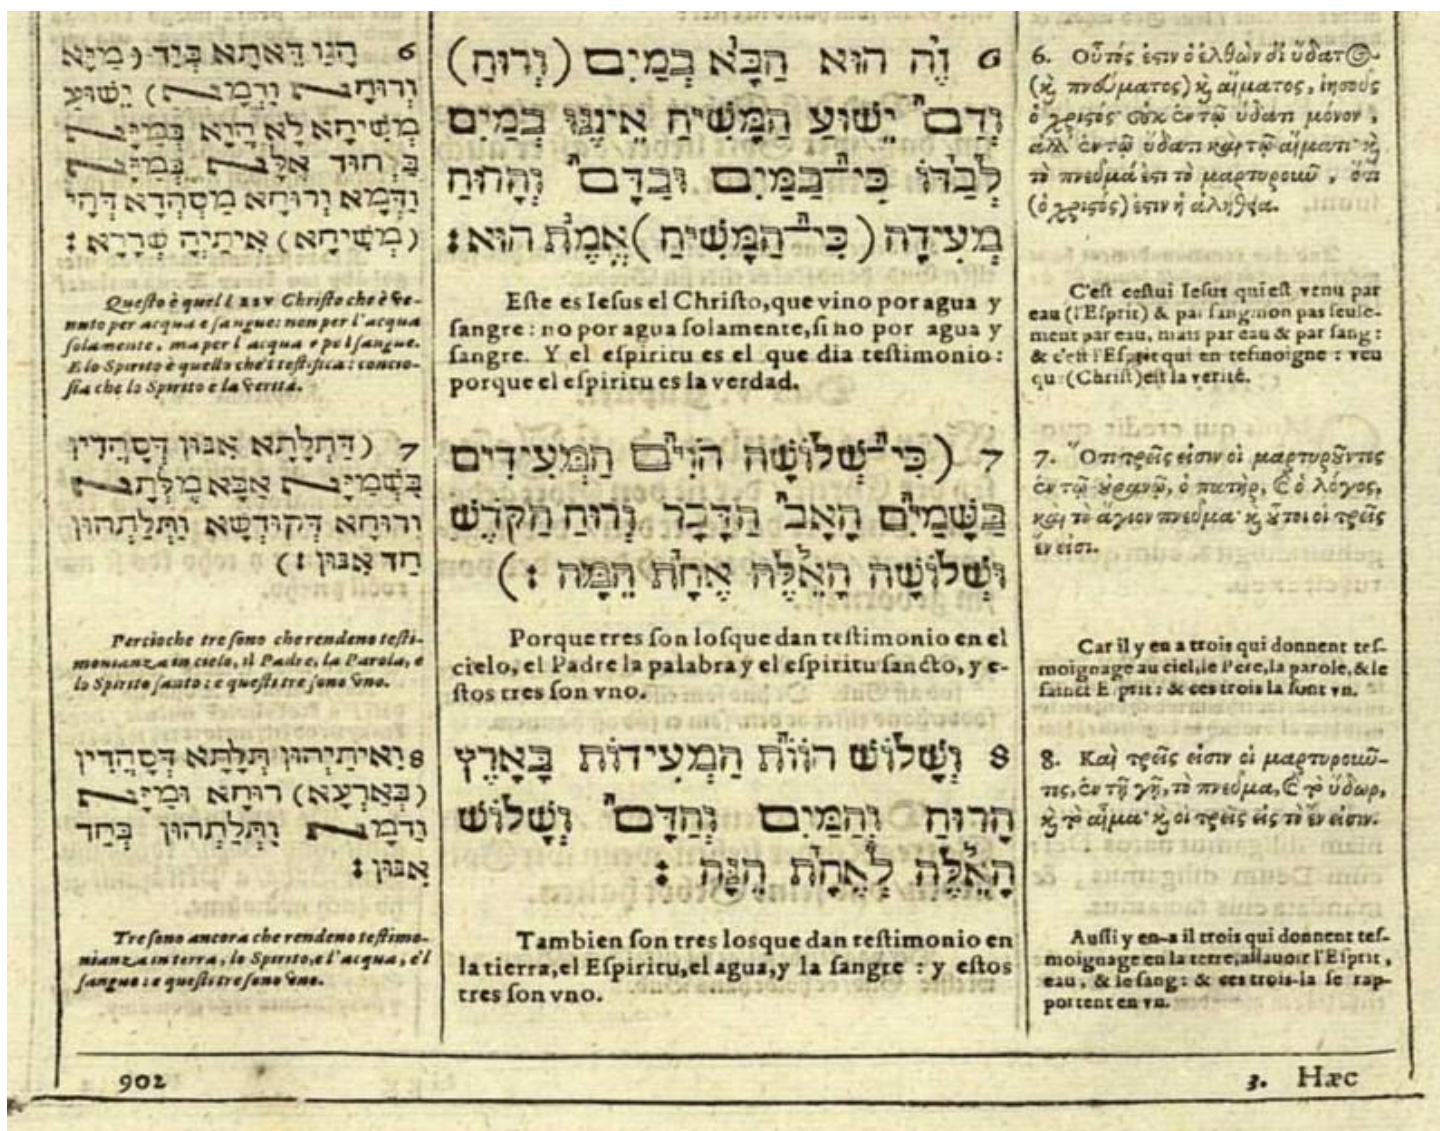 6 הנו דאתא ביד (מיא
ורוחא ודמא) ישוע
משיחא לא הוא במיא
בלחוד אלא במיא
ודמא ורוחא מסהדא דהי
(משיחא) איתיה שררא :
Questo è quel IESV Christo che è ve-
nuto per acqua e sangue: non per l'acqua
solamente, ma per l'acqua e pel sangue.
E lo Spirito è quello che i testifica: concio-
sia che lo Spirito e la verità.
7 (דתלתא אנון דסהדין
בשמיא אבא מלתא
ורוחא דקודשא ותלתהון
חד אנון :)
Percioche tre sono che rendeno testi-
monianza in cielo, il Padre, la Parola, e
lo Spirito santo: e questi tre sono vno.
8 ואיתיהון תלתא דסהדין
(בארעא) רוחא ומיא
ודמא ותלתהון בחד
אנון :
Tre sono ancora che rendeno testimo-
nianza in terra, lo Spirito, e l'acqua, e'l
sangue: e questi tre sono vno.
902
6 זה הוא הבא במים (ורוח)
ודם ישוע המשיח איננו במים
לבדו כי־במים ובדם והרוח
מעידה (כי־המשיח) אמת הוא :
Este es Iesus el Christo, que vino por agua y
sangre: no por agua solamente, si no por agua y
sangre. Y el espiritu es el que dia testimonio:
porque el espiritu es la verdad.
7 (כי־שלושה הוים המעידים
בשמים האב הדבר ורוח הקדש
ושלושה האלה אחת המה :)
Porque tres son losque dan testimonio en el
cielo, el Padre la palabra y el espiritu sancto, y e-
stos tres son vno.
8 ושלוש הוות המעידות בארץ
הרוח והמים והדם ושלוש
האלה לאחת הנה :
Tambien son tres losque dan testimonio en
la tierra, el Espiritu, el agua, y la sangre : y estos
tres son vno.
6. Οὗτός ἐστιν ὁ ἐλθὼν δἰ ὕδατος
(καὶ πνεύματος) καὶ αἵματος, ἰησοῦς
ὁ χριστός· οὐκ ἐν τῷ ὕδατι μόνον,
ἀλλ' ἐν τῷ ὕδατι καὶ τῷ αἵματι· καὶ
τὸ πνεῦμά ἐστι τὸ μαρτυροῦν, ὅτι
(ὁ χριστός) ἐστιν ἡ ἀλήθεια.
C'est cestui Iesus qui est venu par
eau (l'Esprit) & par sang: non pas seule-
ment par eau, mais par eau & par sang:
& c'est l'Esprit qui en tesmoigne : veu
qu' (Christ) est la verité.
7. Ὅτι τρεῖς εἰσιν οἱ μαρτυροῦντες
ἐν τῷ οὐρανῷ, ὁ πατὴρ, καὶ ὁ λόγος,
καὶ τὸ ἅγιον πνεῦμα· καὶ οὗτοι οἱ τρεῖς
ἕν εἰσι.
Car il y en a trois qui donnent tes-
moignage au ciel, le Pere, la parole, & le
sainct Esprit: & ces trois la sont vn.
8. Καὶ τρεῖς εἰσιν οἱ μαρτυροῦν-
τες, ἐν τῇ γῇ, τὸ πνεῦμα, καὶ τὸ ὕδωρ,
καὶ τὸ αἷμα· καὶ οἱ τρεῖς εἰς τὸ ἕν εἰσιν.
Aussi y en-a il trois qui donnent tes-
moignage en la terre, assauoir l'Esprit,
eau, & le sang: & ces trois-la se rap-
portent en vn.
3. Hæc